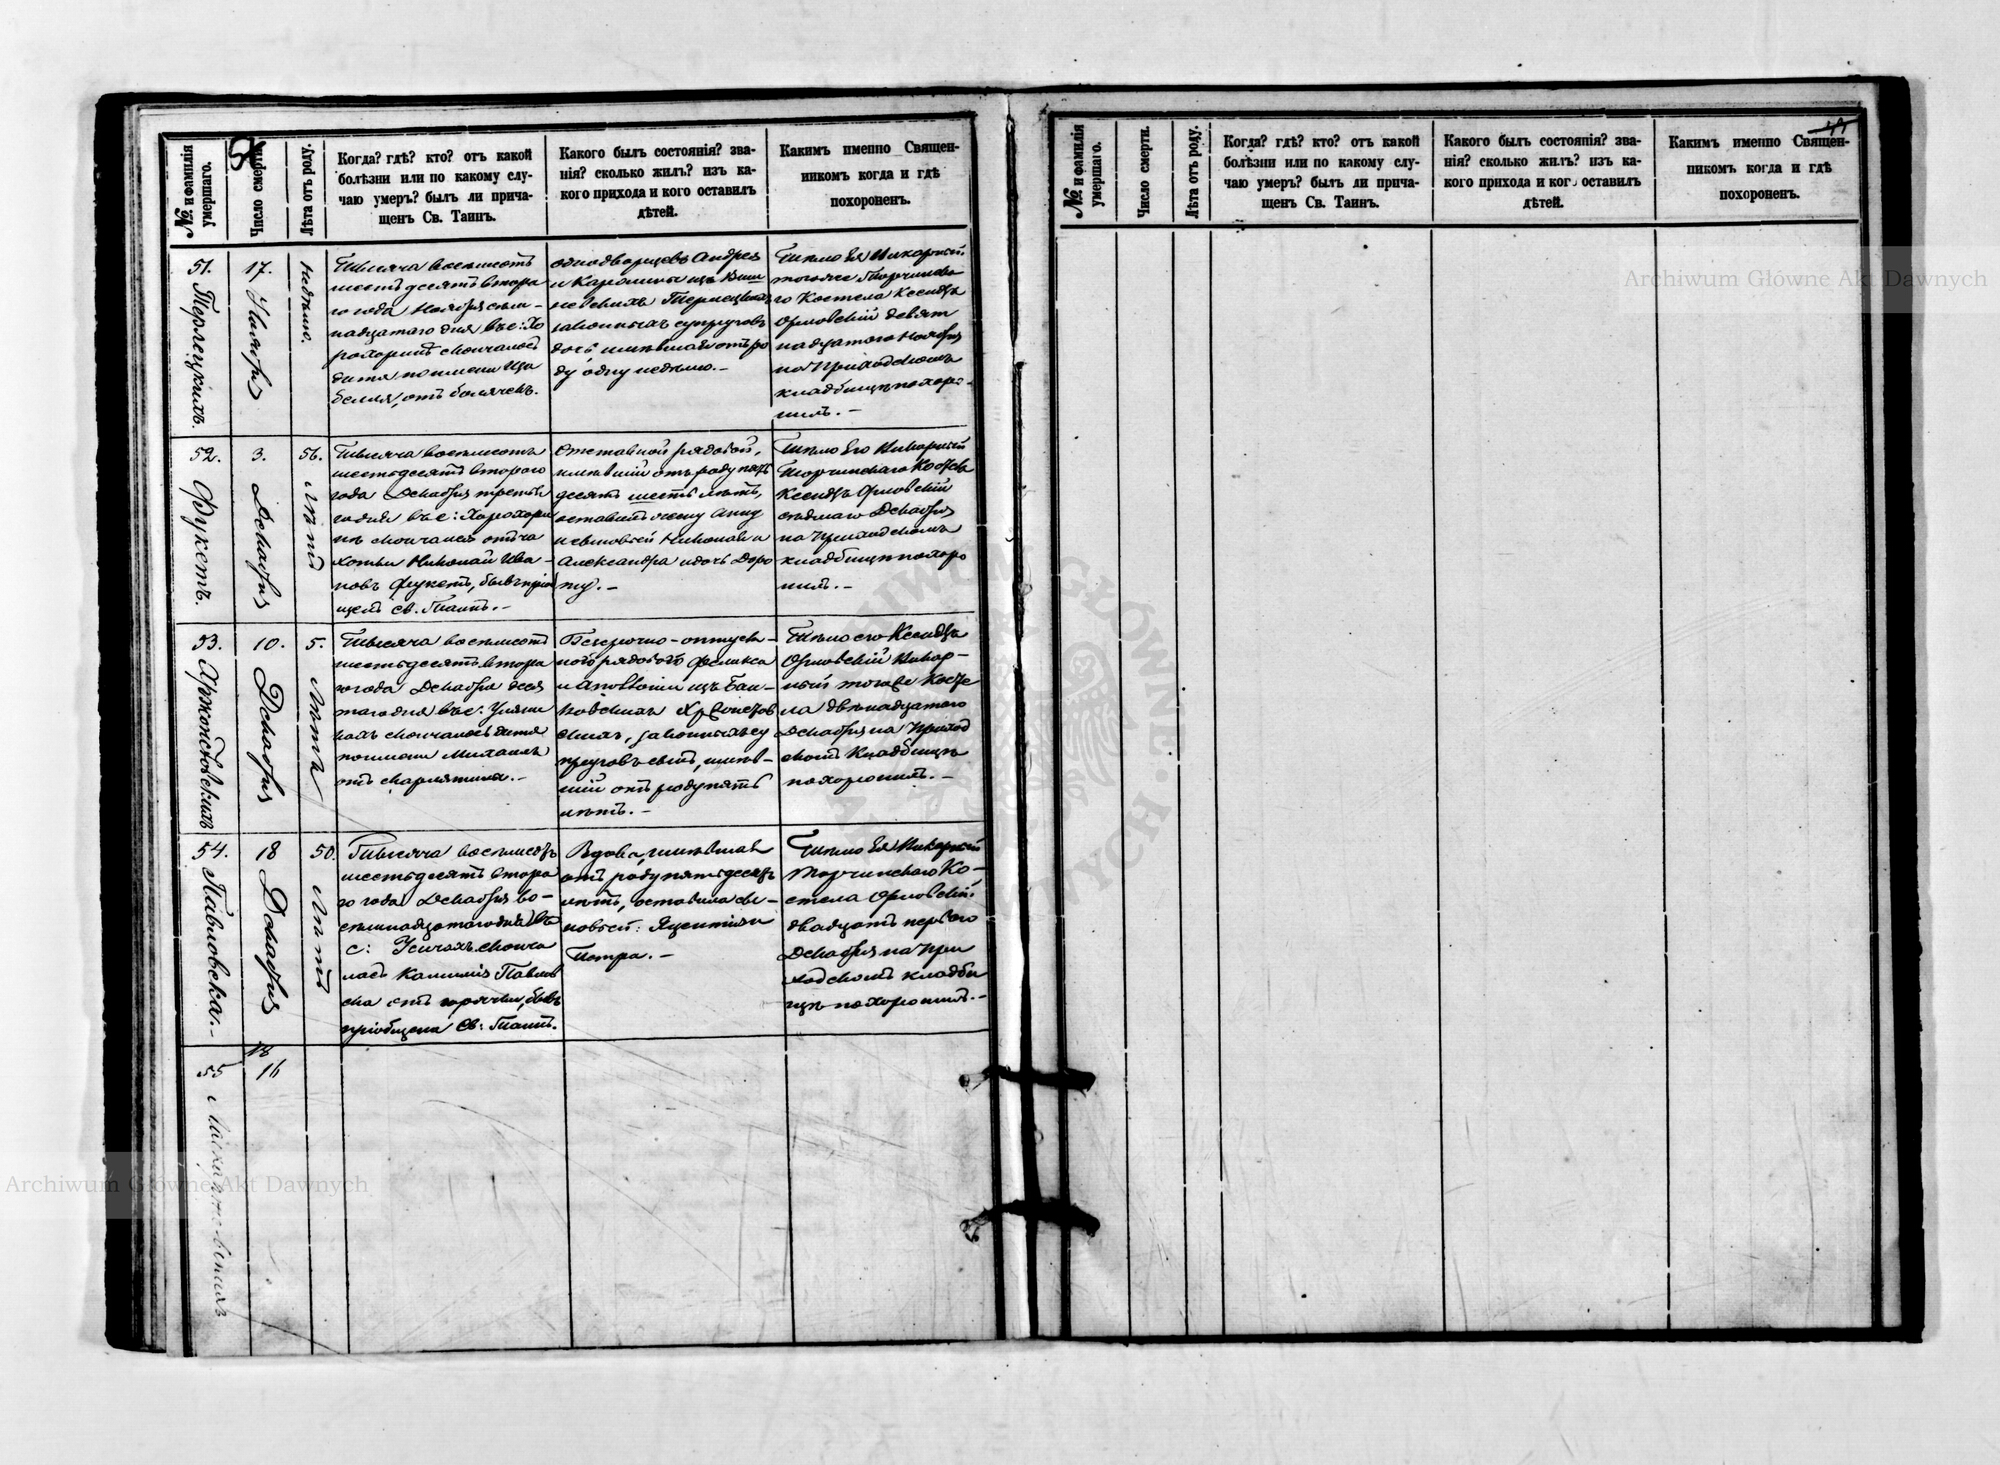 № и фамилія умершаго.
Число смерти.
Лѣта отъ роду.
Когда? гдѣ? кто? отъ какой
болѣзни или по какому слу-
чаю умеръ? былъ ли прича-
щенъ Св. Таинъ.
Какого былъ состоянія? зва-
нія? сколько жилъ? изъ ка-
кого прихода и кого оставилъ
дѣтей.
Какимъ именно Священ-
никомъ когда и гдѣ
похороненъ.
51. Терлецкихъ.
17. Ноября
недѣлю.
Тысяча восемьсотъ
шестьдесятъ втора
го года Ноября сем-
надцатаго дня въ с: Хо
рохоринѣ скончалось
дитя по имени Иза
белля, отъ болячекъ.
однодворцевъ Андрея
и Каролины изъ Виш
невскихъ Терлецкихъ
законныхъ супруговъ
дочь, имѣвшая отъ ро
ду одну недѣлю.-
Тѣло Ея Викарный
тогоже Торчинска
го Костела Ксендзъ
Орловскій девят
надцатого Ноября
на Приходскомъ
кладбищѣ похоро-
нилъ.-
52. Фукстъ.
3. Декабря
56. лѣтъ
Тысяча восемьсотъ
шестьдесятъ второго
года Декабря третья
го дня въ с: Хорохори
нѣ скончался отъ ча
хотки Николай Ива-
новъ Фукстъ, бывъ пріоб
щенъ св. Таинъ.-
Отставной рядовой,
имѣвшій отъ роду пять
десятъ шесть лѣтъ,
оставилъ жену
и сыновей Николая и
Александра и дочь Доро
ту.-
Тѣло Его Викарный
Торчинскаго Костела
Ксендзъ Орловскій
седмаго Декабря
на Приходскомъ
кладбищѣ похоро
нилъ.-
53. Хржонстовскихъ
10. Декабря
5. лѣтъ
Тысяча восемьсотъ
шестьдесятъ втора
го года Декабря деся
таго дня въ с: Уляни
кахъ скончалось дитя
по имени Михаилъ
отъ скарлятины.-
Безсрочно-отпуск-
ного рядового Феликса
и Аполлоніи изъ Бан-
ковскихъ Хржонстов
скихъ, законныхъ су
пруговъ сынъ, имѣв-
шій отъ роду пять
лѣтъ.-
Тѣло его Ксендзъ
Орловскій Викар-
ный тогоже Косте
ла двѣнадцатого
Декабря на Приход
скомъ Кладбищѣ
похоронилъ.-
54. Павловска.-
18 Декабря
50. лѣтъ
Тысяча восемьсотъ
шестьдесятъ втора
го года Декабря во-
семнадцатаго дня въ
с: Усичахъ сконча
лась Павлов
ска отъ горячки, бывъ
пріобщена Св: Таинъ.
Вдова, имѣвшая
отъ роду пятьдесятъ
лѣтъ, оставила сы-
новей: Яцентія и
Петра.-
Тѣло Ея Викарный
Торчинскаго Ко-
стела Орловскій
двадцать перваго
Декабря на При
ходскомъ кладби
щѣ похоронилъ.-
55
18
16
№ и фамилія умершаго.
Число смерти.
Лѣта отъ роду.
Когда? гдѣ? кто? отъ какой
болѣзни или по какому слу-
чаю умеръ? былъ ли прича-
щенъ Св. Таинъ.
Какого былъ состоянія? зва-
нія? сколько жилъ? изъ ка-
кого прихода и кого оставилъ
дѣтей.
Какимъ именно Священ-
никомъ когда и гдѣ
похороненъ.
Archiwum Główne Akt Dawnych
Archiwum Główne Akt Dawnych